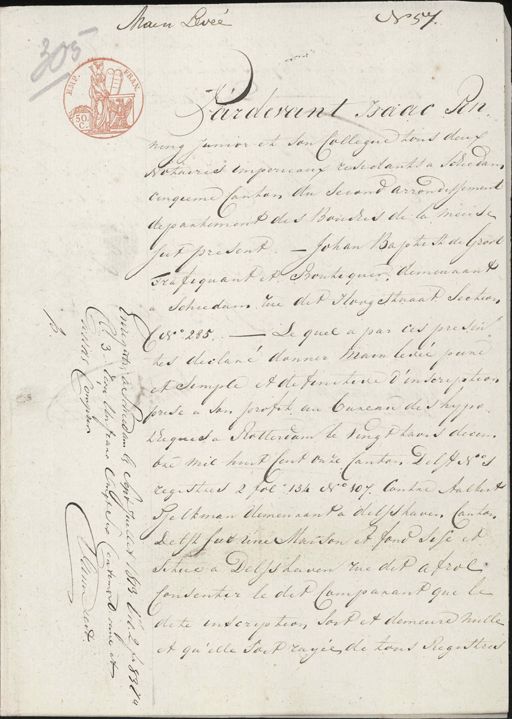 Main Levée
N° 57.
305
EMP. FRAN.
50 C.
Pardevant Isaac Pen
ning Junior et son Collegue tous deux
Notaires imperiaux residants a Schiedam
cinquieme Canton du second arrondissement
departement des Bouches de la Meuse
fut present — Johan Baptist de Groot
trafiquant et demeurant
a Schiedam rue dit Hoogstraat Section
C N° 285. — Le quel a par ces presen
tes declaré donner Main levée pure
et simple et definitive d'inscription
prise a son profit au Bureau des hypo
theques a Rotterdam le vingt trois decem
bre mil huit cent onze Canton Delft N° 1
registres 2 fol° 134 N° 107. Contre Aalbert
demeurant a delfshaven Canton
Delft sur une Maison et fond sise et
située a Delfshaven rue dit
Consentir le dit Comparant que le
dite inscription soit et demeure nulle
et qu'elle soit rayée de tous Registres
Enregistré à Schiedam le Juillet 1813 Vol 2 f° 83 V°
C. 3. Reçu un franc Centimes
Compris